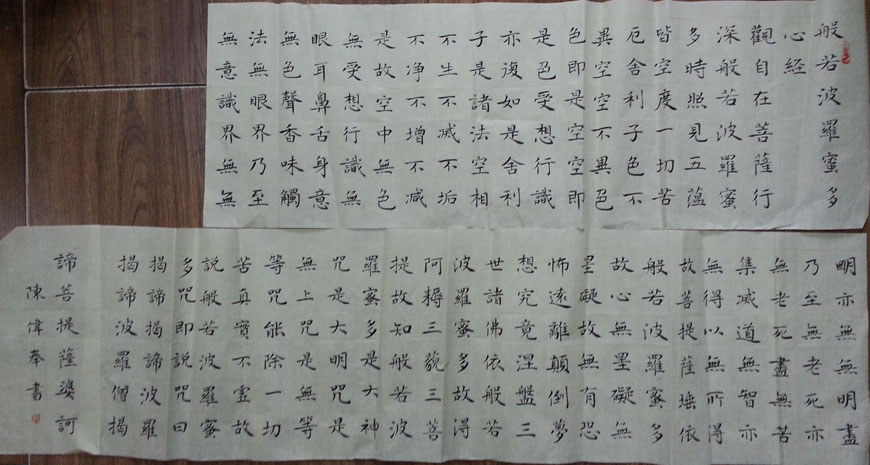 般若波羅蜜多
心経
觀自在菩薩行
深般若波羅蜜
多時照見五蘊
皆空度一切苦
厄舍利子色不
異空空不異色
色即是空空即
是色受想行識
亦復如是舍利
子是諸法空相
不生不滅不垢
不净不增不减
是故空中無色
無受想行識無
眼耳鼻舌身意
無色聲香味觸
法無眼界乃至
無意識界無無
明亦無無明盡
乃至無老死亦
無老死盡無苦
集滅道無智亦
無得以無所得
故菩提薩埵依
般若波羅蜜多
故心無罣礙無
罣礙故無有恐
怖遠離顛倒夢
想究竟涅盤三
世諸佛依般若
波羅蜜多故得
阿耨三藐三菩
提故知般若波
羅蜜多是大神
咒是大明咒是
無上咒是無等
等咒能除一切
苦真實不虛故
説般若波羅蜜
多咒即説咒曰
揭諦揭諦波羅
揭諦波羅僧揭
諦菩提薩婆訶
陳偉奉書